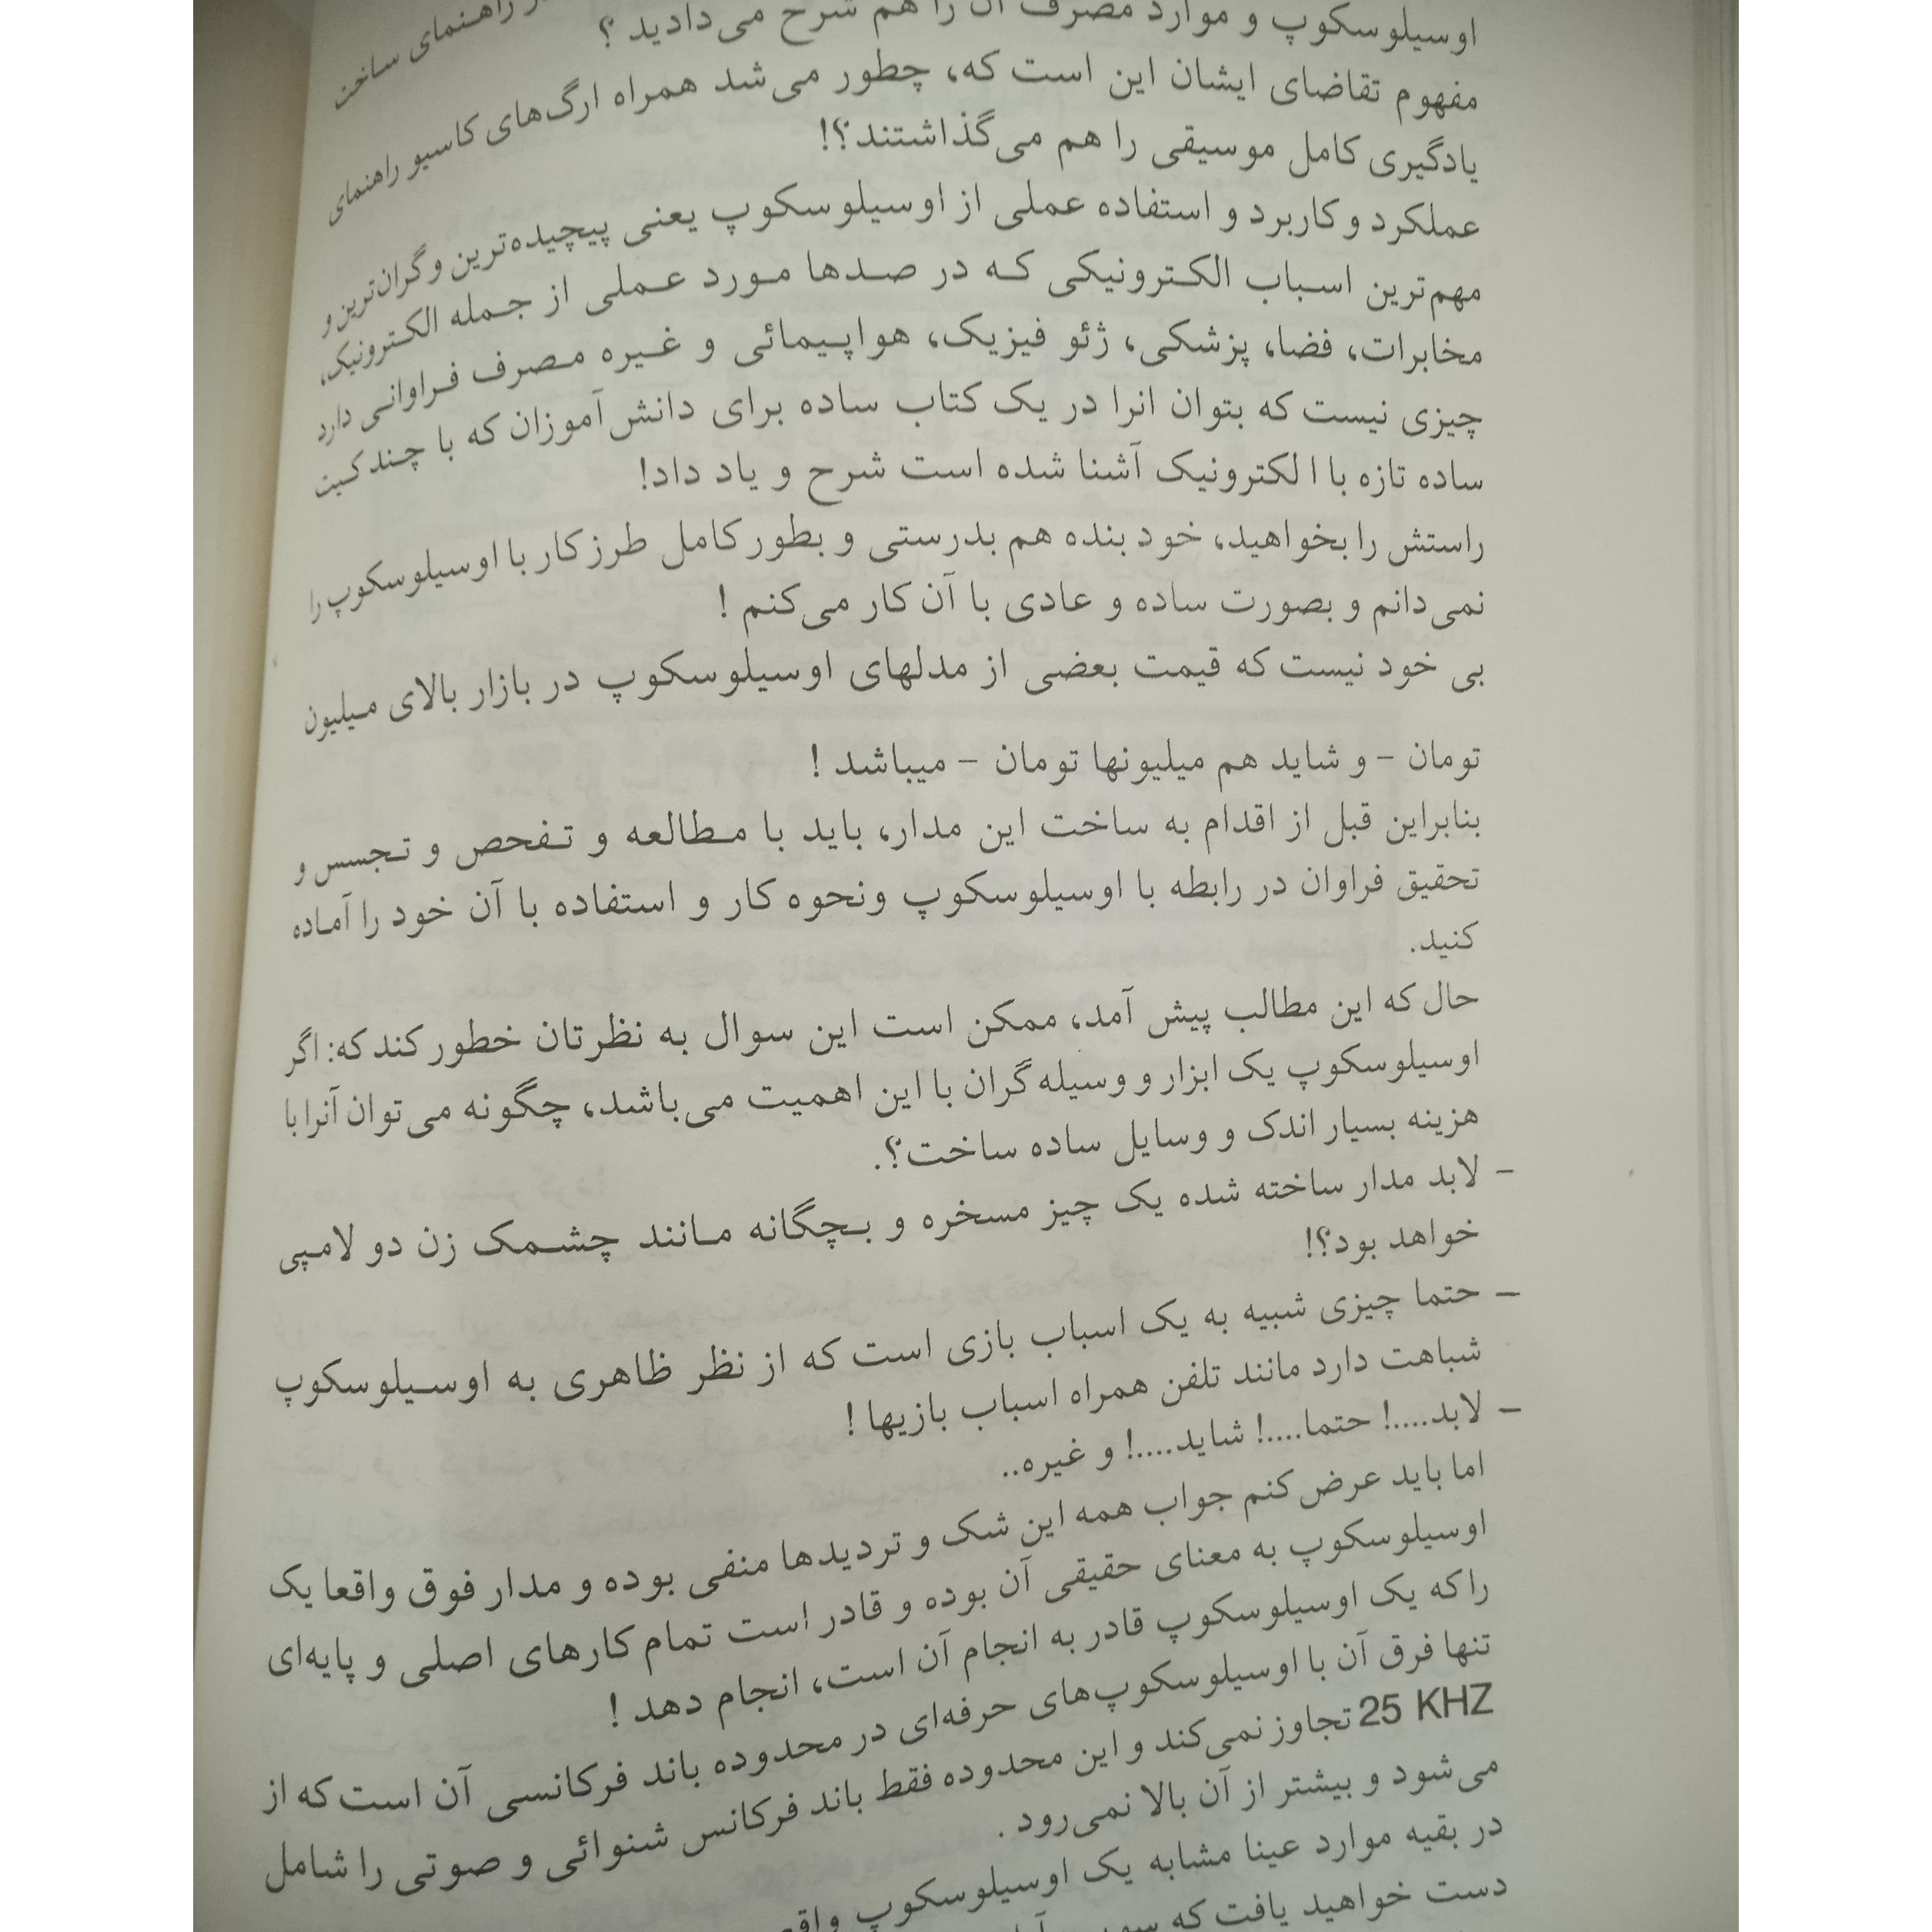 راهنمای ساخت
اوسیلوسکوپ و موارد مصرف آن را هم شرح می‌دادید ؟
مفهوم تقاضای ایشان این است که، چطور می‌شد همراه ارگ‌های کاسیو راهنمای
یادگیری کامل موسیقی را هم می‌گذاشتند؟!
عملکرد و کاربرد و استفاده عملی از اوسیلوسکوپ یعنی پیچیده‌ترین و گران‌ترین و
مهم‌ترین اسباب الکترونیکی که در صدها مورد عملی از جمله الکترونیک،
مخابرات، فضا، پزشکی، ژئو فیزیک، هواپیمائی و غیره مصرف فراوانی دارد
چیزی نیست که بتوان انرا در یک کتاب ساده برای دانش‌آموزان که با چند کیت
ساده تازه با الکترونیک آشنا شده است شرح و یاد داد!
راستش را بخواهید، خود بنده هم بدرستی و بطور کامل طرز کار با اوسیلوسکوپ را
نمی‌دانم و بصورت ساده و عادی با آن کار می‌کنم !
بی خود نیست که قیمت بعضی از مدلهای اوسیلوسکوپ در بازار بالای میلیون
تومان – و شاید هم میلیونها تومان – میباشد !
بنابراین قبل از اقدام به ساخت این مدار، باید با مطالعه و تفحص و تجسس و
تحقیق فراوان در رابطه با اوسیلوسکوپ ونحوه کار و استفاده با آن خود را آماده
کنید.
حال که این مطالب پیش آمد، ممکن است این سوال به نظرتان خطور کند که: اگر
اوسیلوسکوپ یک ابزار و وسیله گران با این اهمیت می‌باشد، چگونه می‌توان آنرا با
هزینه بسیار اندک و وسایل ساده ساخت؟.
– لابد مدار ساخته شده یک چیز مسخره و بچگانه مانند چشمک زن دو لامپی
خواهد بود؟!
– حتما چیزی شبیه به یک اسباب بازی است که از نظر ظاهری به اوسیلوسکوپ
شباهت دارد مانند تلفن همراه اسباب بازیها !
– لابد....! حتما....! شاید....! و غیره..
اما باید عرض کنم جواب همه این شک و تردیدها منفی بوده و مدار فوق واقعا یک
اوسیلوسکوپ به معنای حقیقی آن بوده و قادر است تمام کارهای اصلی و پایه‌ای
را که یک اوسیلوسکوپ قادر به انجام آن است، انجام دهد !
تنها فرق آن با اوسیلوسکوپ‌های حرفه‌ای در محدوده باند فرکانسی آن است که از
25 KHZ تجاوز نمی‌کند و این محدوده فقط باند فرکانس شنوائی و صوتی را شامل
می‌شود و بیشتر از آن بالا نمی‌رود .
در بقیه موارد عینا مشابه یک اوسیلوسکوپ
دست خواهید یافت که